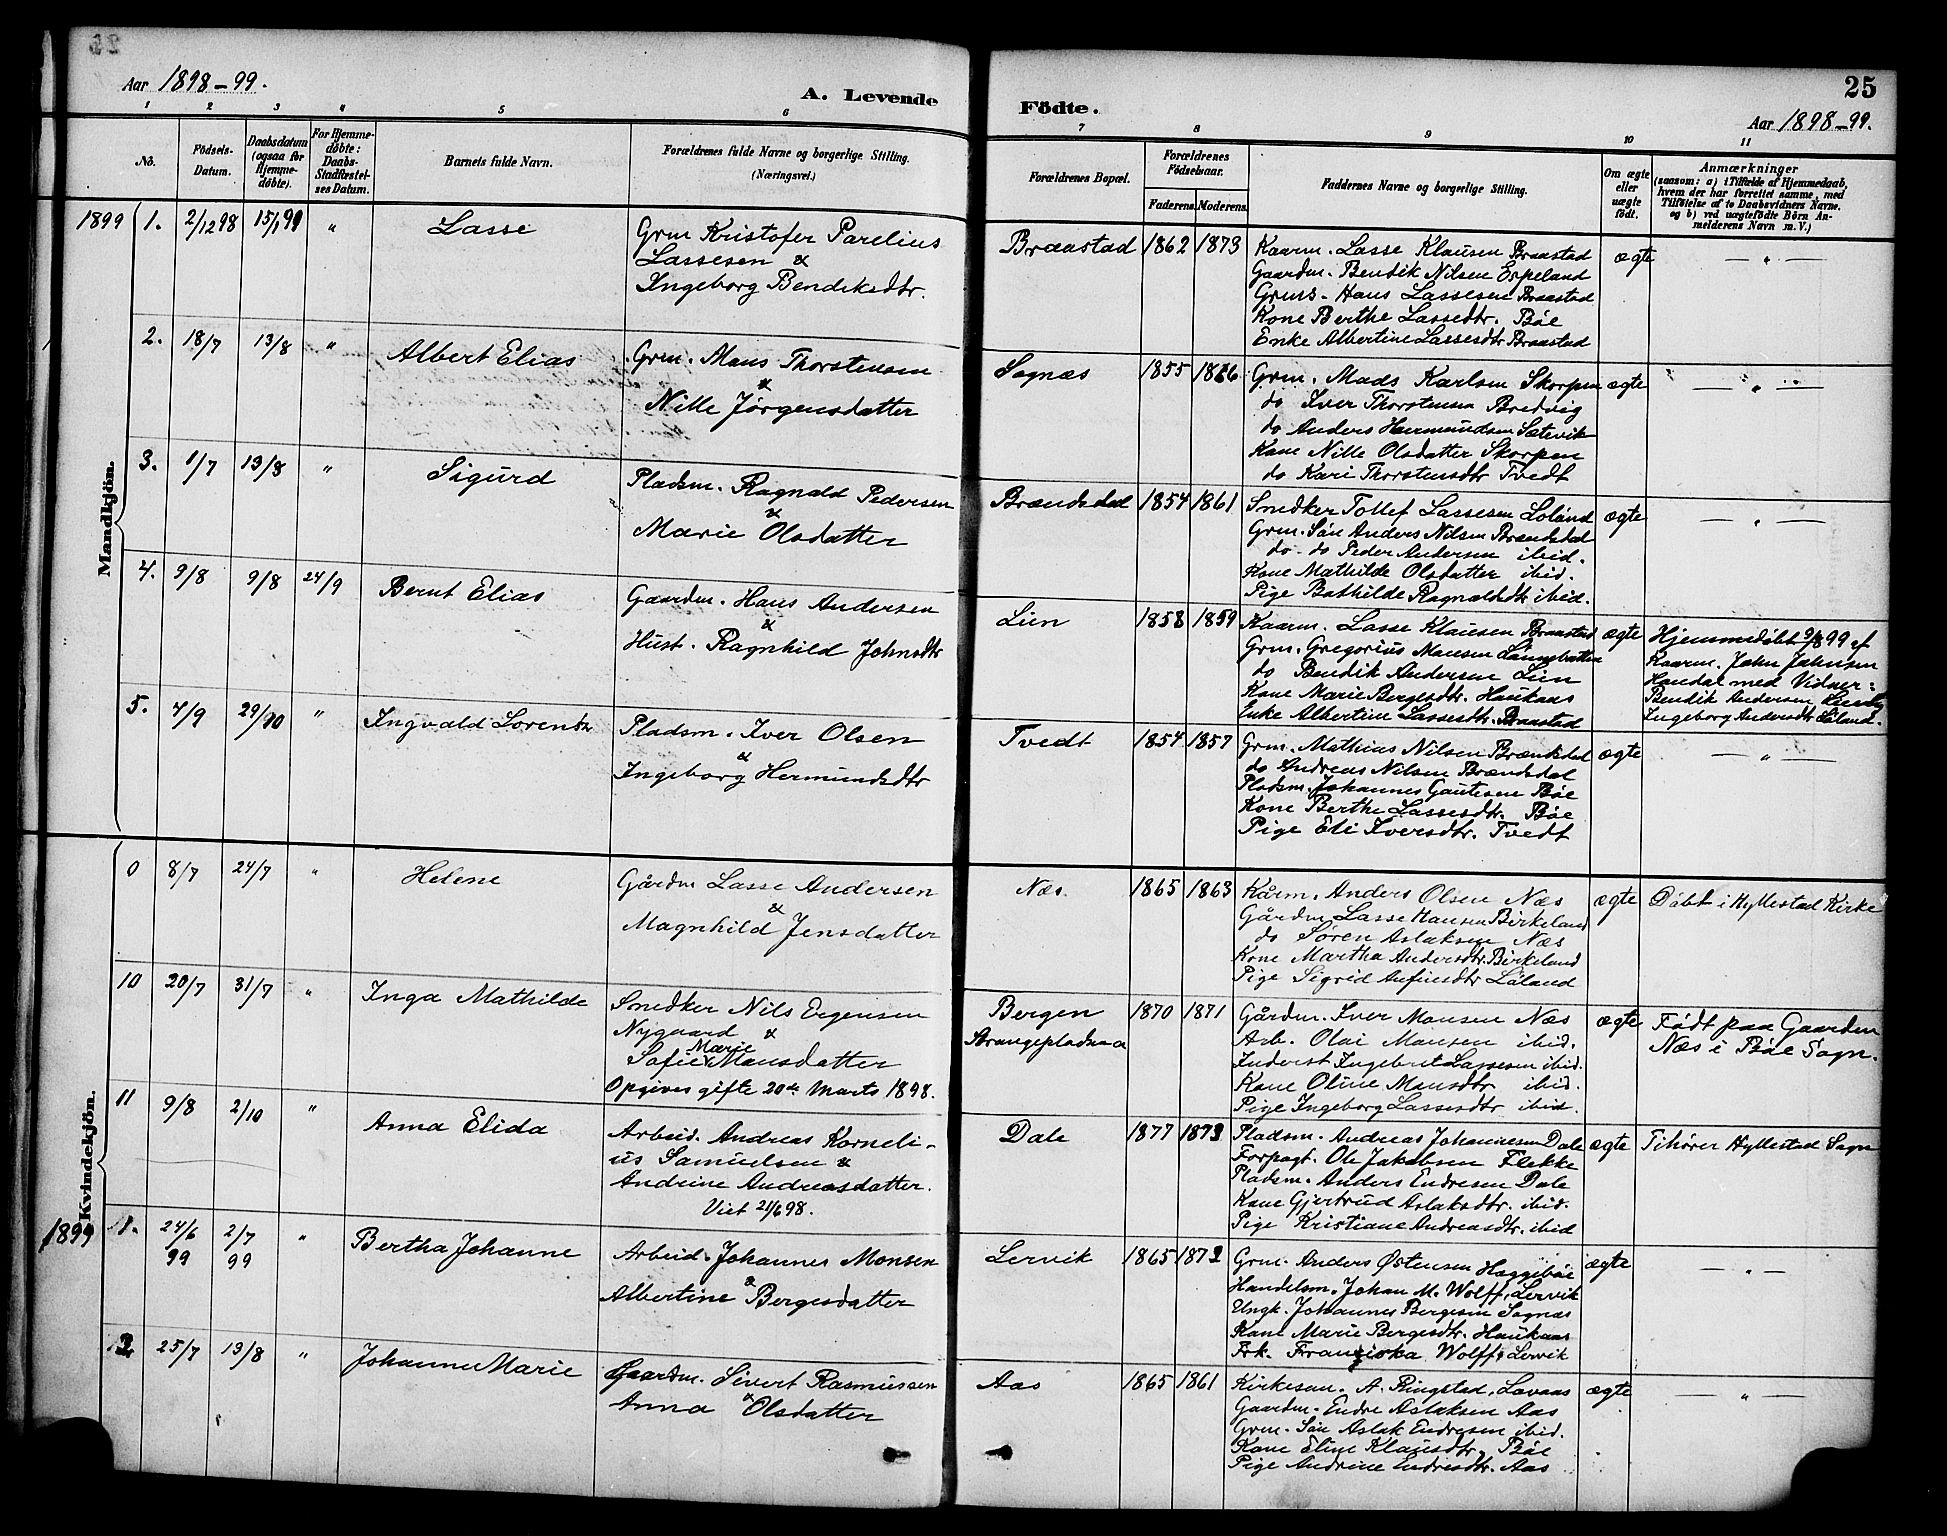 25
Aar 1898-99.
A. Levende Födte.
Aar 1898-99.
1 2 3 4 5 6 7 8 9 10 11
No.
Födsels-Datum.
Daabsdatum (ogsaa for Hjemmedöbte).
For Hjemmedöbte: Daabs-Stadfæstelses Datum.
Barnets fulde Navn.
Forældrenes fulde Navne og borgerlige Stilling.
(Næringsvei.)
Forældrenes Bopæl.
Forældrenes Födselsaar.
Faderens. Moderens.
Faddernes Navne og borgerlige Stilling.
Om ægte eller uægte födt.
Anmærkninger
(saasom: a) i Tilfælde af Hjemmedaab, hvem der har forrettet samme, med Tilföielse af to Daabsvidners Navne. og b) ved uægtefödte Börn Anmelderens Navn m. V.)
Mandkjön.
1899 1. 2/12 98 15/1 99 " Lasse
Grm Kristofer Parelius
Lassesen &
Ingeborg Bendiksdtr.
Braastad 1862 1873
Kaarm. Lasse Klausen Braastad
Gaardm. Bendik Nilsen Espeland
Grms. Hans Lassesen Braastad
Kone Berthe Lassedtr. Bøe
Enke Albertine Lassesdtr Braastad
ægte — " —
2. 18/7 13/8 " Albert Elias
Grm. Mans Thorstensen
&
Nille Jørgensdatter
Sognæs 1855 1866
Grm. Mads Karlsen Skorpen
do Iver Thorstensen Bredvig
do Anders Hermundsen Sætevik
Kone Nille Olsdatter Skorpen
do Kari Thorstensdtr Tvedt
ægte — " —
3. 1/7 13/8 " Sigurd
Pladsm. Ragnald Pedersen
&
Marie Olsdatter
Brændsdal 1854 1861
Snedker Tollef Lassesen Loland
Grm. Søn Anders Nilsen Brændsdal
do - do Peder Andersen ibid.
Kone Mathilde Olsdatter ibid.
Pige Bathilde Ragnaldsdtr ibid.
ægte — " —
4. 9/8 9/8 24/9 Bernt Elias
Gaardm. Hans Andersen
&
Hust. Ragnhild Johnsdtr
Lien 1858 1859
Kaarm. Lasse Klausen Braastad
Grm. Gregorius Mansen
do Bendik Andersen Lien
Kone Marie Bergesdtr. Haukaas
Enke Albertine Lassesdtr. Braastad
ægte
Hjemmedøbt 9/8 99 af
Kaarm. John Johnsen
med Vidner:
Bendik Andersen Lien og
Ingeborg Andersdtr
5. 4/9 29/10 " Ingvald Lorentz
Pladsm. Iver Olsen
&
Ingeborg Hermundsdtr
Tvedt 1854 1857
Grm. Mathias Nilsen Brændsdal
do Andreas Nilsen Brændsdal
Pladsm. Johannes Gautesen Bøe
Kone Berthe Lassesdtr. Bøe
Pige Eli Iversdtr. Tvedt
ægte — " —
Kvindekjön.
0 8/7 24/7 " Helene
Gårdm Lasse Andersen
&
Magnhild Jensdatter
Næs. 1865 1863
Kårm. Anders Olsen Næs
Gårdm. Lasse Hansen Birkeland
do Søren Aslaksen Næs
Kone Martha Andersdtr. Birkeland
Pige Sigrid Anfinsdtr Løland
ægte Døbt i Hyllestad Kirke
10 20/7 31/7 " Inga Mathilde
Snedker Nils
Nygaard &
Marie
Sofie Mansdatter
Opgives gifte 20de Marts 1898.
Bergen 1870 1871
Strangepladsen
Gårdm. Iver Monsen Næs
Arb. Olai Monsen ibid.
Inderst Ingebret Lassesen ibid.
Kone Oline Mansdtr ibid.
Pige Ingeborg Lassesdtr ibid.
ægte
Født paa Gaarden
Næs i Bøe Sogn.
11 9/8 2/10 " Anna Elida
Arbeid. Andreas Korneli-
us Samuelsen &
Andrine Andreasdatter.
Viet 21/6 98.
Dale 1877 1873
Pladsm. Andreas Johannesen Dale
Forpagt. Ole Jakobsen Flekke
Pladsm. Anders Endresen Dale
Kone Gjertrud Aslaksdtr. ibid.
Pige Kristiane Andreasdtr. ibid
ægte Tihører Hyllestad Sogn
1899 1. 24/6 99 2/7 99 " Bertha Johanne
Arbeid. Johannes Monsen
&
Albertine Bergesdatter
Lervik 1865 1872
Grm. Anders Østensen Hæggibøe
Handelsm. Johan M. Wolff, Lervik
Ungk. Johannes Bergesen Sognæs
Kone Marie Bergesdtr. Haukaas
Frk. Franziska Wolff, Lervik
ægte — " —
2. 25/7 13/8 " Johanne Marie
Gaardm. Sivert Rasmussen
&
Anna Olsdatter
Aas 1865 1861
Kirkesan. A. Ringstad, Lavaas
Gaardm. Endre Aslaksen Aas
Grm. Søn Aslak Endresen ibid.
Kone Eline Klausdtr, Bøe
Pige Andrine Endresdtr. Aas
ægte — " —